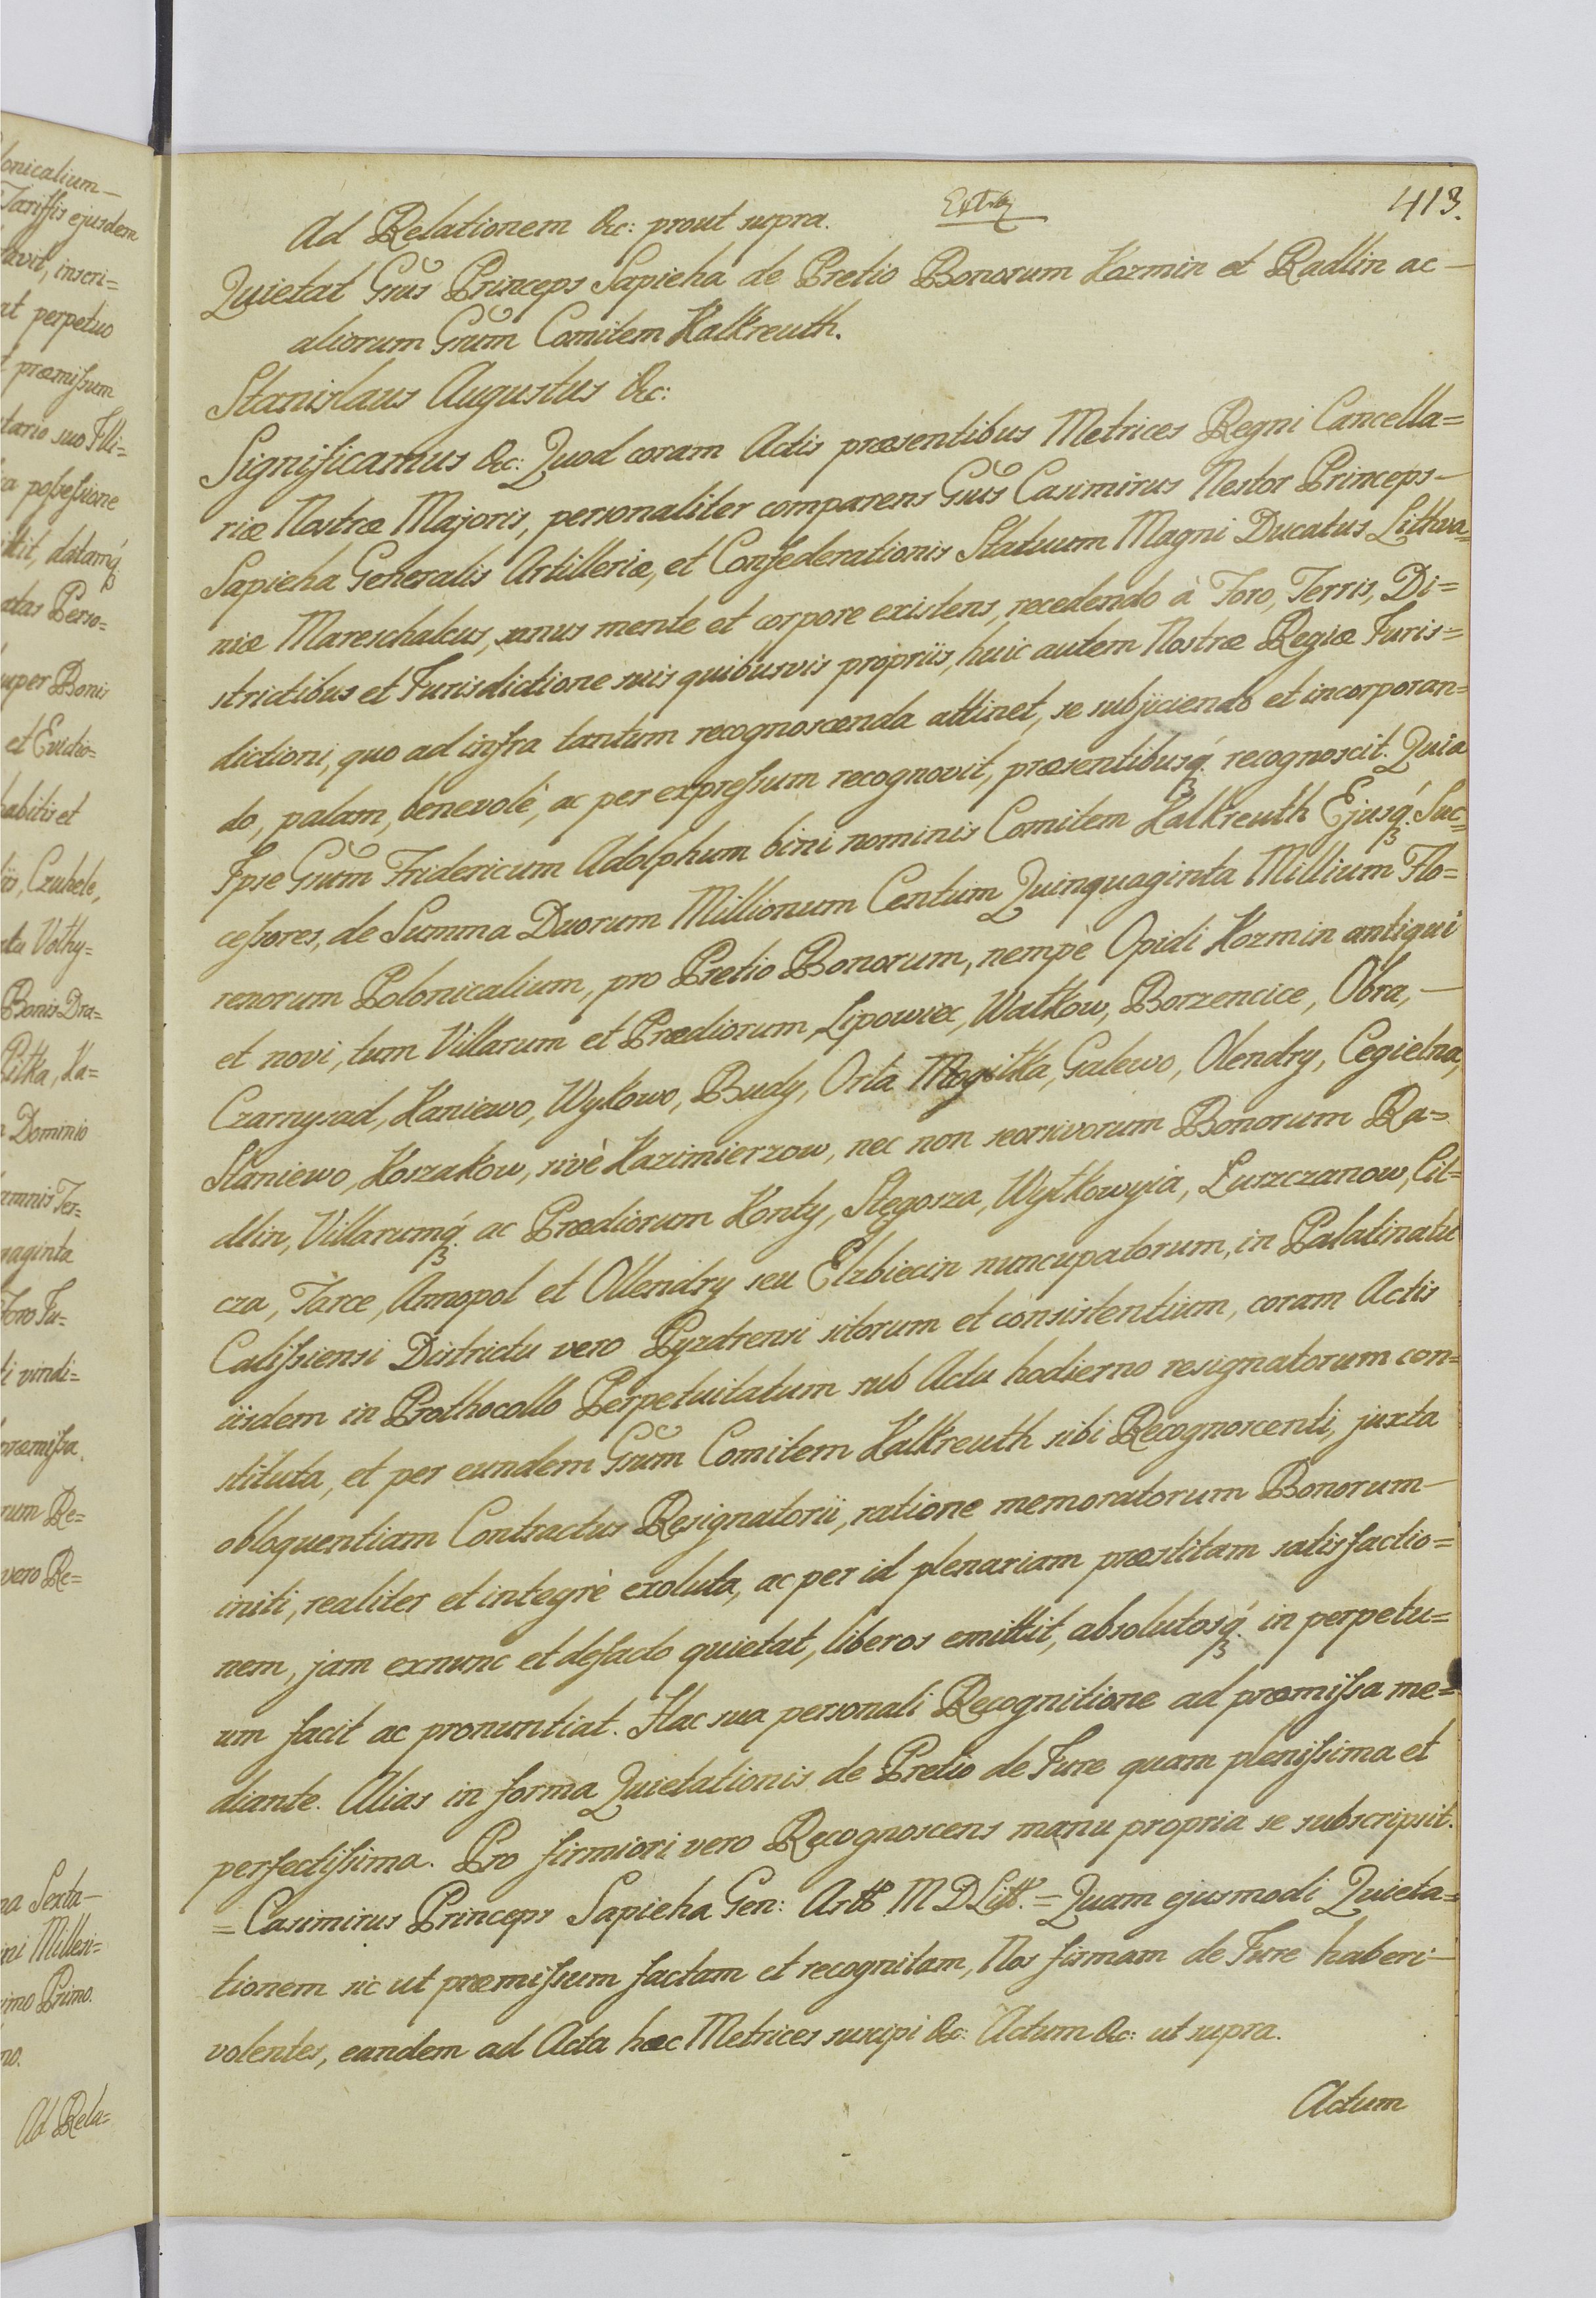 onicalium —
Tariffis ejusdem
tavit, inscri=
at perpetuo
t præmiſsum
tario suo Illi=
a poſseſsione
ittit, datamq́₃
atas Perso=
uper Bonis
et Evidio=
habitis et
iis, Czukele,
tu Vothy=
Bonis Dra=
Pitka, Ka=
n Dominio
amnis Ter=
naginta
Foro Ju=
i vindi=
præmiſsa.
rum Re=
vero Re=
na Sexta —
ini Millesi=
imo Primo.
no.
Ad Rela=
413.
Ad Relationem &c: prout supra.
Quietat Grūs Princeps Sapieha de Pretio Bonorum Kozmin et Radlin ac —
aliorum Grūm Comitem Kalkreuth.
Stanislaus Augustus &c:
Significamus &c: Quod coram Actis præsentibus Metrices Regni Cancella=
riæ Nostræ Majoris, personaliter comparens Grūs Casimirus Nestor Princeps —
Sapieha Generalis Artilleriæ, et Confederationis Statuum Magni Ducatus Lithva=
niæ Mareschalcus, sanus mente et corpore existens, recedendo à Foro, Terris, Di=
strictibus et Jurisdictione suis quibusvis propriis, huic autem Nostræ Regiæ Juris=
dictioni, quo ad infra tantum recognoscenda attinet, se subjiciendo et incorporan=
do, palam, benevolè, ac per expreſsum recognovit, præsentibusq́₃. recognoscit. Quia
Ipse Grūm Fridericum Adolphum bini nominis Comitem Kalkreuth Ejusq́₃. Suc=
ceſsores, de Summa Duorum Millionum Centum Quinquaginta Millium Flo=
renorum Polonicalium, pro Pretio Bonorum, nempè Opidi Kozmin antiqui
et novi, tum Villarum et Prædiorum Lipowiec, Wałkow, Borzencice, Obra, —
Czarnysad, Kaniewo, Wykowo, Budy, Orla Mogiłka, Galewo, Olendry, Cegielna,
Staniewo, Koszakow, sivè Kazimierzow, nec non seorsivorum Bonorum Ra=
dlin, Villarumq́₃. ac Prædiorum Konty, Stęgosza, Wyłkowyia, Łuszczanow, Cil=
cza, Tarce, Annopol et Ollendry seu Elzbiecin nuncupatorum, in Palatinatu
Caliſsiensi Districtu vero Pyzdrensi sitorum et consistentium, coram Actis
iisdem in Prothocollo Perpetuitatum sub Actu hodierno resignatorum con=
stituta, et per eundem Grūm Comitem Kalkreuth sibi Recognoscenti, juxta
obloquentiam Contractus Resignatorii, ratione memoratorum Bonorum —
initi, realiter et integrè exoluta, ac per id plenariam præstitam satisfactio=
nem, jam exnunc et defacto quietat, liberos emittit, absolutosq́₃. in perpetu=
um facit ac pronuntiat. Hac sua personali Recognitione ad præmiſsa me=
diante. Alias in forma Quietationis de Pretio de Jure quam pleniſsima et
perfectiſsima. Pro firmiori vero Recognoscens manu propria se subscripsit.
= Casimirus Princeps Sapieha Gen: Artt° M D Litt°. = Quam ejusmodi Quieta=
tionem sic ut præmiſsum factam et recognitam, Nos firmam de Jure haberi —
volentes, eandem ad Acta hæc Metrices suscipi &c: Actum &c: ut supra.
Actum